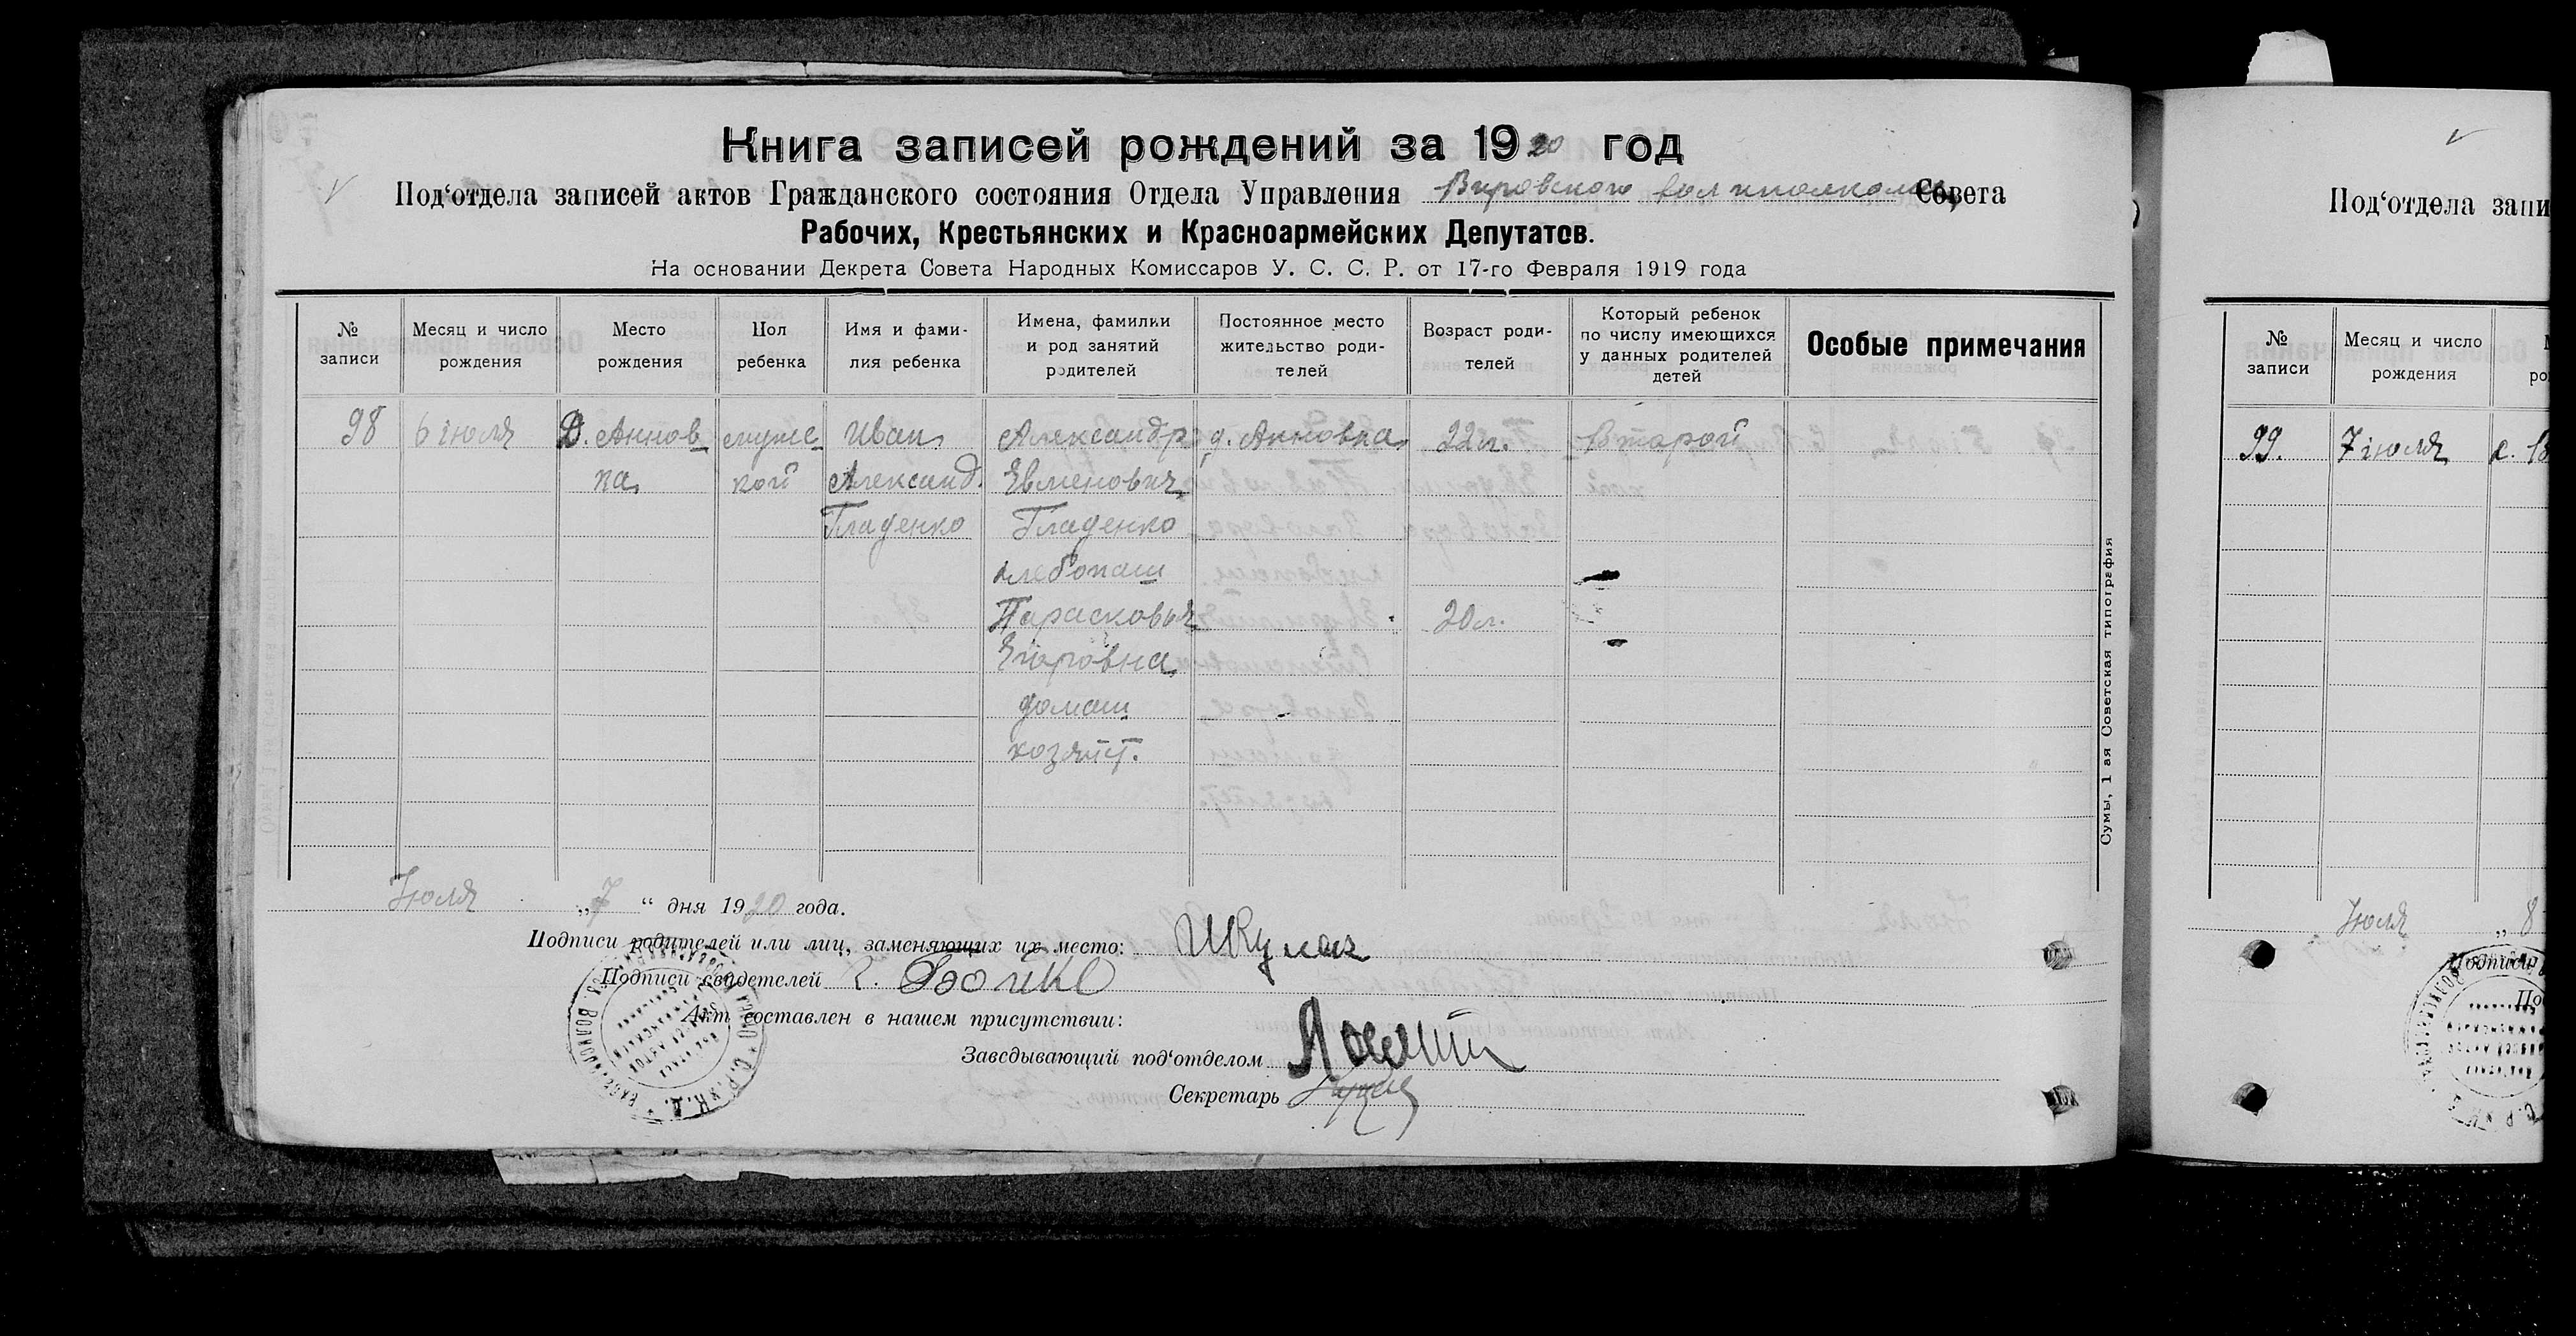 Книга записей рождений за 1920 год
Под‘отдела записей актов Гражданского состояния Отдела Управления Вировского волисполкома Совета
Рабочих, Крестьянских и Красноармейских Депутатов.
На основании Декрета Совета Народных Комиссаров У. С. С. Р. от 17-го Февраля 1919 года
№ записи Месяц и число рождения Место рождения Пол ребенка Имя и фамилия ребенка Имена, фамилии и род занятий родителей Постоянное место жительство родителей Возраст родителей Который ребенок по числу имеющихся у данных родителей детей Особые примечания
98 6 июля Д. Аннов мужс Иван Александр д. Анновка 22 л. Второй
ка кой Александ. Евменович
Гладенко Гладенко
хлебопаш
Парасковья 20 л.
Егоровна
домаш
хозяйст.
Июля „7“ дня 1920 года.
Подписи родителей или лиц, заменяющих их место:
Подписи свидетелей Бойко
Акт составлен в нашем присутствии:
Заведывающий под‘отделом
Секретарь
Сумы, 1 ая Советская типография
Под‘отдела запи
№ записи Месяц и число рождения
99. 7 июля с.
Июля „8
Подписи